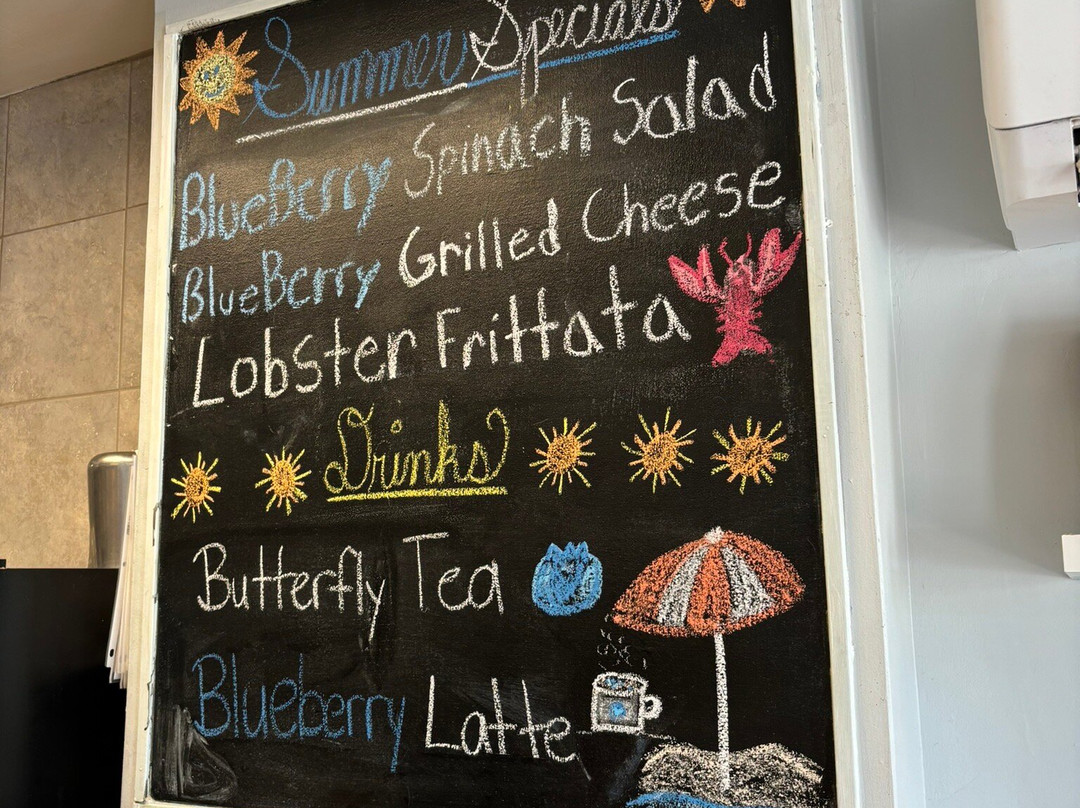 Summer Specials
BlueBerry Spinach Salad
BlueBerry Grilled Cheese
Lobster Frittata
Drinks
Butterfly Tea
Blueberry Latte